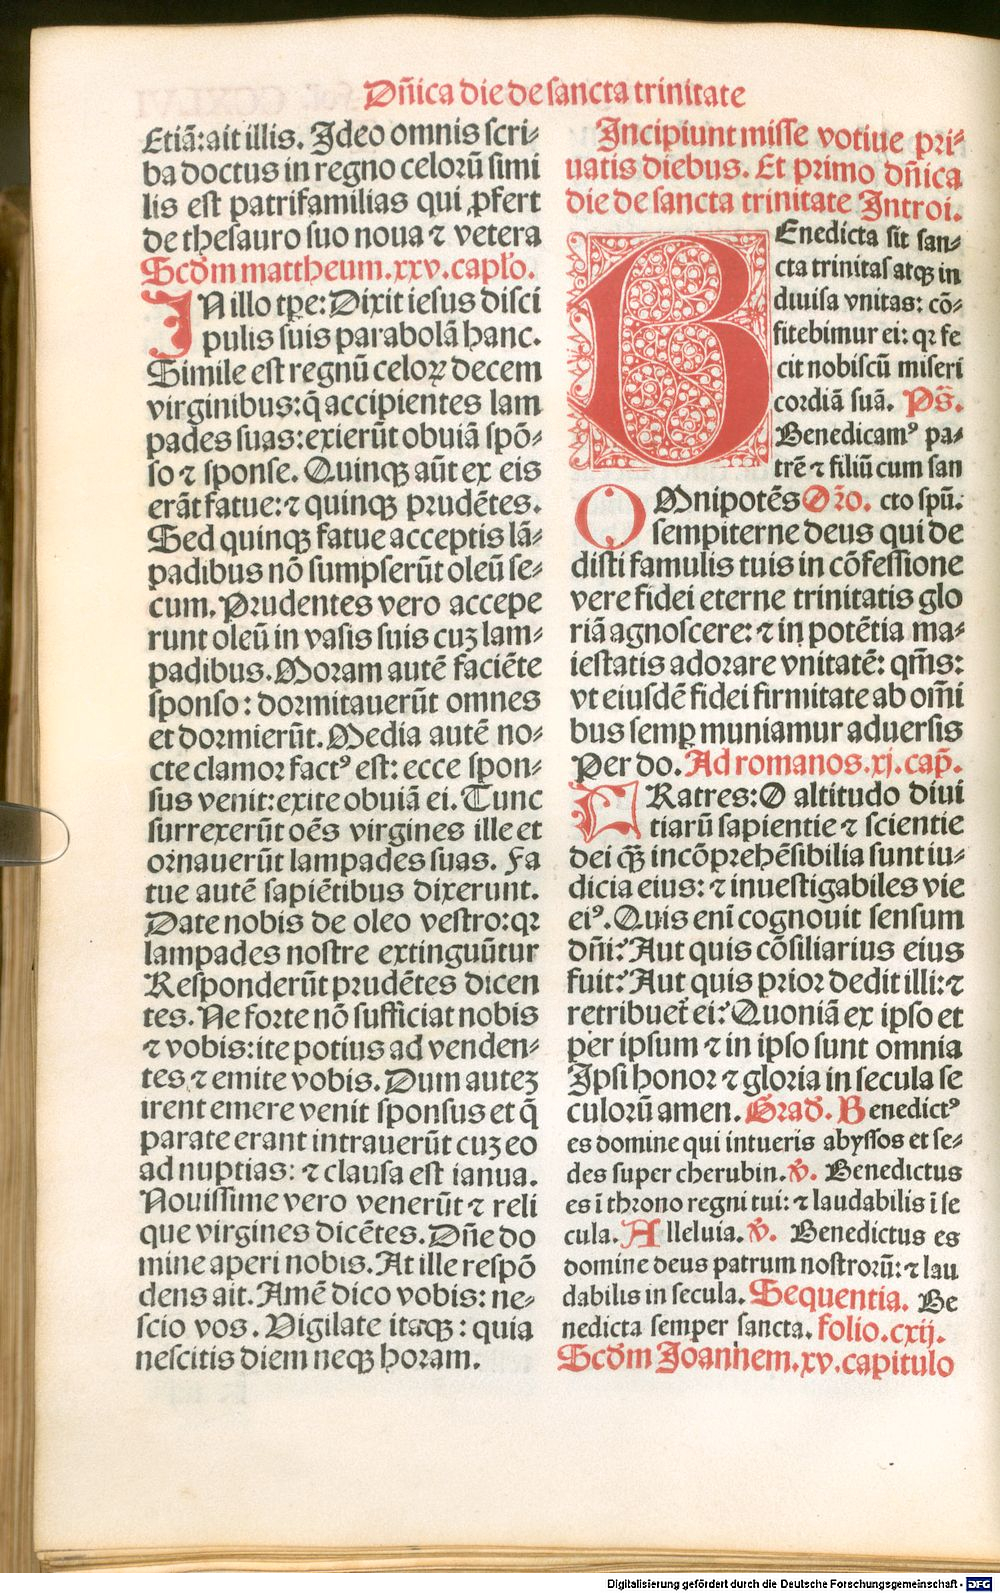 Dñica die de sancta trinitate
Etiã: ait illis. Ideo omnis scri-
ba doctus in regno celorũ simi
lis est patrifamilias qui ꝓfert
de thesauro suo noua ⁊ vetera
Scðm mattheum.xxv.capľo.
IN illo tꝑe: Dixit iesus disci
pulis suis parabolã hanc.
Simile est regnũ celoꝝ decem
virginibus: q̃ accipientes lam
pades suas: exierũt obuiã spõ-
so ⁊ sponse. Quinqꝫ aũt ex eis
erãt fatue: ⁊ quinqꝫ prudẽtes.
Sed quinqꝫ fatue acceptis lã-
padibus nõ sumpserũt oleũ se-
cum. Prudentes vero accepe
runt oleũ in vasis suis cuꝫ lam-
padibus. Moram autẽ faciẽte
sponso: dormitauerũt omnes
et dormierũt. Media autẽ no-
cte clamor factꝰ est: ecce spon-
sus venit: exite obuiã ei. Tunc
surrexerũt oẽs virgines ille et
ornauerũt lampades suas. Fa
tue autẽ sapiẽtibus dixerunt.
Date nobis de oleo vestro: qꝛ
lampades nostre extinguũtur
Responderũt prudẽtes dicen
tes. Ne forte nõ sufficiat nobis
⁊ vobis: ite potius ad venden-
tes ⁊ emite vobis. Dum auteꝫ
irent emere venit sponsus et q̃
parate erant intrauerũt cuꝫ eo
ad nuptias: ⁊ clausa est ianua.
Nouissime vero venerũt ⁊ reli
que virgines dicẽtes. Dñe do
mine aperi nobis. At ille respõ
dens ait. Amẽ dico vobis: ne-
scio vos. Vigilate itaqꝫ: quia
nescitis diem neqꝫ horam.
Incipiunt misse votiue pri-
uatis diebus. Et primo dñica
die de sancta trinitate Introi.
BEnedicta sit san-
cta trinitas atqꝫ in
diuisa vnitas: cõ-
fitebimur ei: qꝛ fe
cit nobiscũ miseri
cordiã suã. Ps̃.
Benedicamꝰ pa-
trẽ ⁊ filiũ cum san
OMnipotẽs Oro. cto spũ.
sempiterne deus qui de
disti famulis tuis in cõfessione
vere fidei eterne trinitatis glo
riã agnoscere: ⁊ in potẽtia ma-
iestatis adorare vnitatẽ: qm̃s:
vt eiusdẽ fidei firmitate ab om̃i
bus semꝑ muniamur aduersis
Per do. Ad romanos.xj.cap̃.
FRatres: O altitudo diui
tiarũ sapientie ⁊ scientie
dei q̃ꝫ incõprehẽsibilia sunt iu-
dicia eius: ⁊ inuestigabiles vie
eiꝰ. Quis enĩ cognouit sensum
dñi? Aut quis cõsiliarius eius
fuit? Aut quis prior dedit illi: ⁊
retribuet̃ ei? Quoniã ex ipso et
per ipsum ⁊ in ipso sunt omnia
Ipsi honor ⁊ gloria in secula se
culorũ amen. Grad̃. Benedictꝰ
es domine qui intueris abyssos et se-
des super cherubin. v̾. Benedictus
es ĩ throno regni tui: ⁊ laudabilis ĩ se
cula. Alleluia. v̾. Benedictus es
domine deus patrum nostrorũ: ⁊ lau
dabilis in secula. Sequentia. Be
nedicta semper sancta. folio.cxij.
Scðm Joannem.xv.capitulo
Digitalisierung gefördert durch die Deutsche Forschungsgemeinschaft - DFG